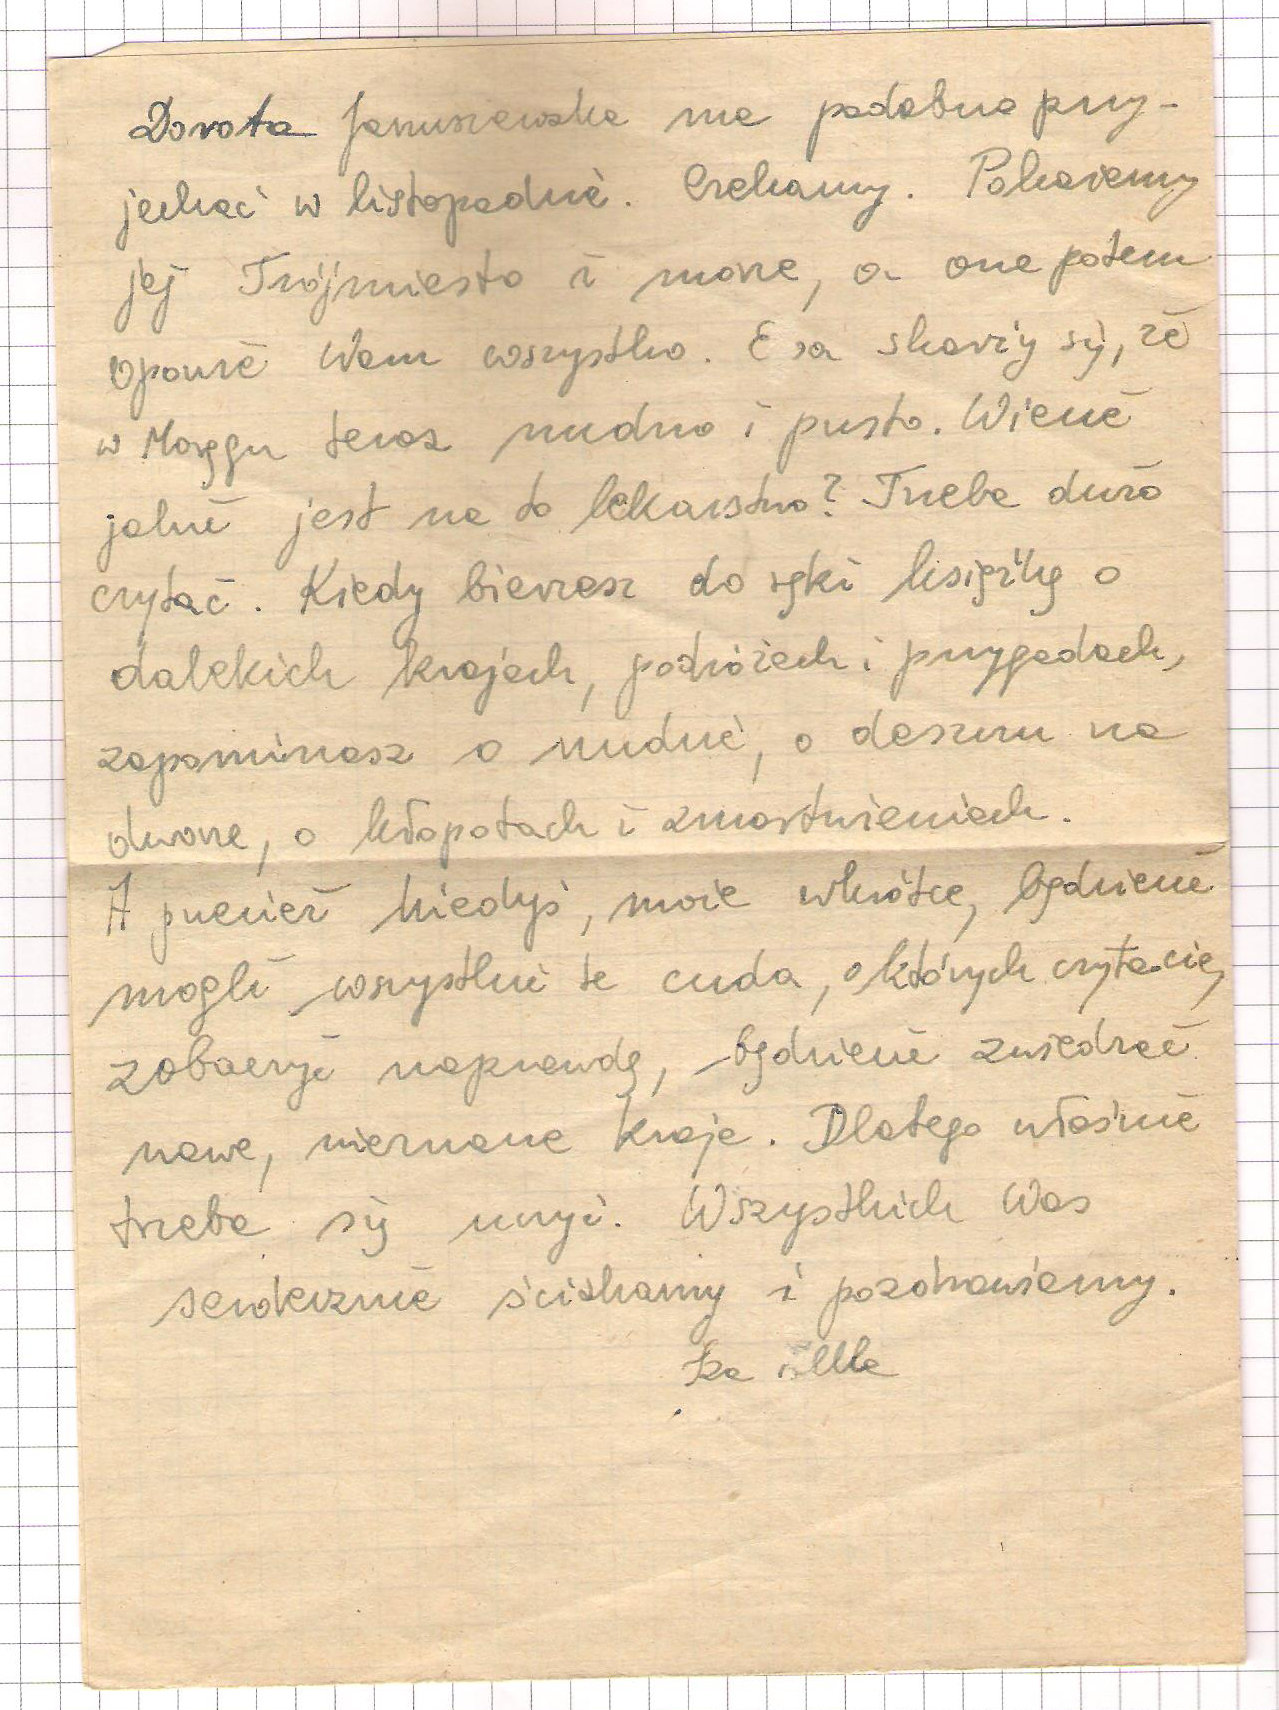 Dorota Januszewska ma podobno przy-
jechać w listopadzie. Czekamy. Pokażemy
jej Trójmiasto i morze, a ona potem
opowie Wam wszystko. Ewa skarży się, że
w Morągu teraz nudno i pusto. Wiecie
jakie jest na to lekarstwo? Trzeba dużo
czytać. Kiedy bierzesz do ręki książkę o
dalekich krajach, podróżach i przygodach,
zapominasz o nudzie, o deszczu na
dworze, o kłopotach i zmartwieniach.
A przecież kiedyś, może wkrótce, będziecie
mogli wszystkie te cuda, o których czytacie,
zobaczyć naprawdę, będziecie zwiedzać
nowe, nieznane kraje. Dlatego właśnie
trzeba się uczyć. Wszystkich Was
serdecznie ściskamy i pozdrawiamy.